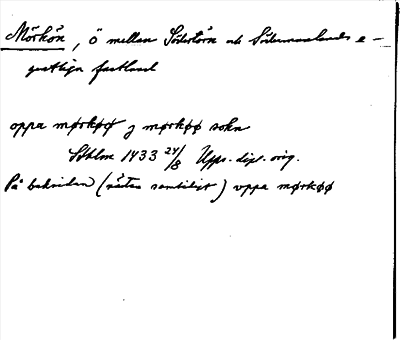 Mörkön, ö mellan Södertörn och Södermanlands e-
gentliga fastland
oppa mørkøø j mørkøø sokn
Sthlm 1433 24/8 Upps. dipl. orig.
På baksidan (nästan samtidigt) uppa mørkøø